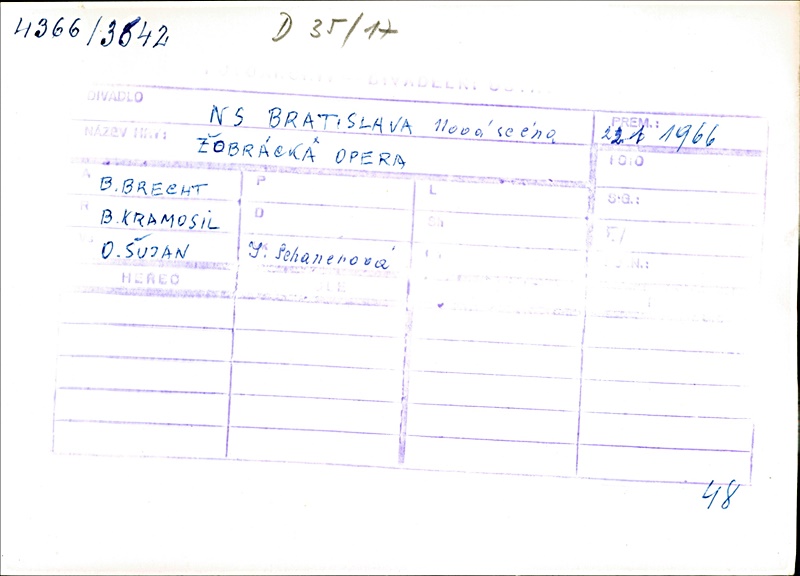 4366/3542 D 35/17
DIVADLO NS BRATISLAVA Nová scéna PREM.: 22.1 1966
NÁZEV HRY: ŽOBRÁCKÁ OPERA FOTO
A B.BRECHT P L S.G.:
R B.KRAMOSIL D
O.ŠUJAN J. Schanerová
HEREC
48